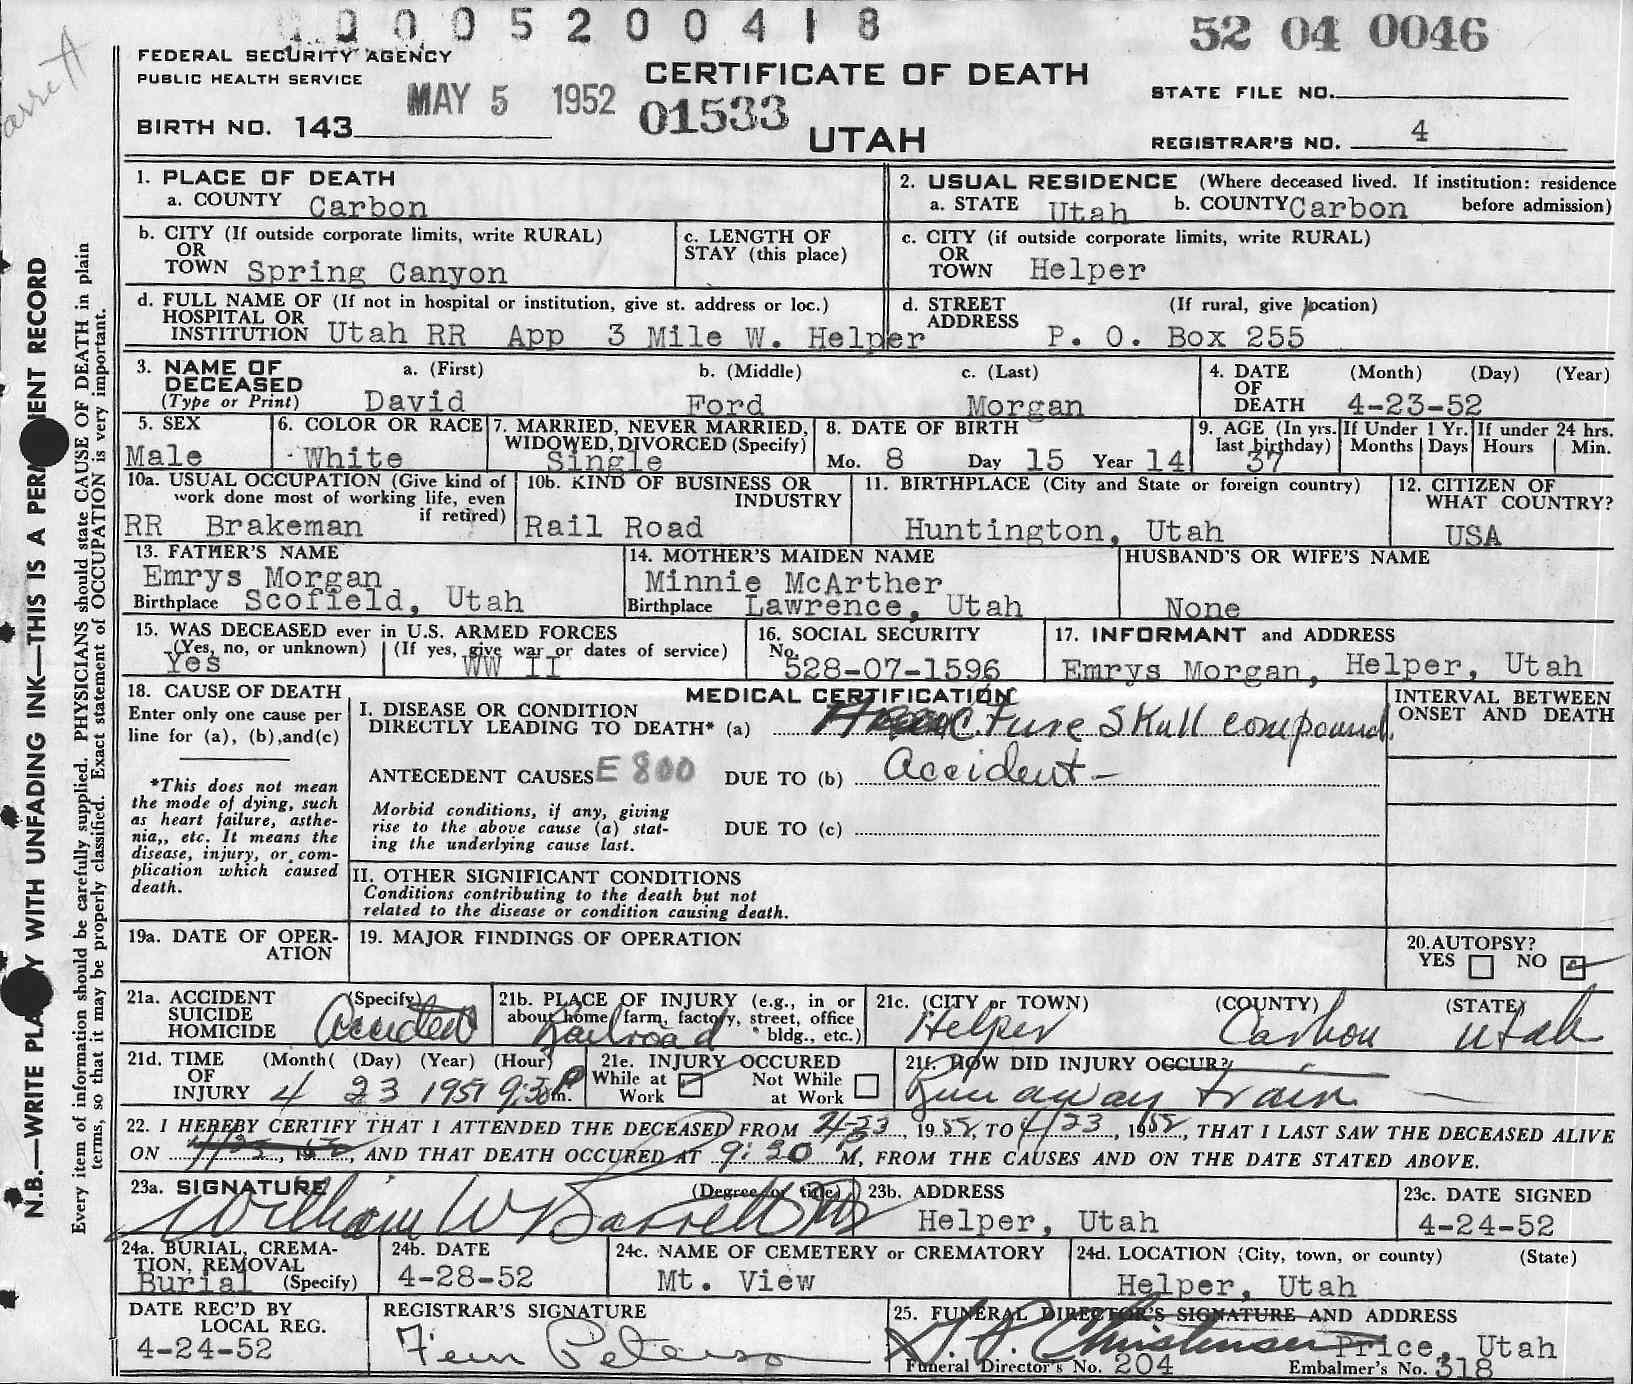 0 0 0 5 2 0 0 4 1 8
52 04 0046
FEDERAL SECURITY AGENCY
PUBLIC HEALTH SERVICE
CERTIFICATE OF DEATH
MAY 5 1952
01533
STATE FILE NO.
BIRTH NO. 143
UTAH
REGISTRAR'S NO. 4
1. PLACE OF DEATH
a. COUNTY Carbon
2. USUAL RESIDENCE (Where deceased lived. If institution: residence before admission)
a. STATE Utah b. COUNTY Carbon
b. CITY (If outside corporate limits, write RURAL)
OR
TOWN Spring Canyon
c. LENGTH OF
STAY (this place)
c. CITY (if outside corporate limits, write RURAL)
OR
TOWN Helper
d. FULL NAME OF (If not in hospital or institution, give st. address or loc.)
HOSPITAL OR
INSTITUTION Utah RR App 3 Mile W. Helper
d. STREET (If rural, give location)
ADDRESS P. O. Box 255
3. NAME OF
DECEASED
(Type or Print)
a. (First) David
b. (Middle) Ford
c. (Last) Morgan
4. DATE (Month) (Day) (Year)
OF
DEATH 4-23-52
5. SEX
Male
6. COLOR OR RACE
White
7. MARRIED, NEVER MARRIED,
WIDOWED, DIVORCED (Specify)
Single
8. DATE OF BIRTH
Mo. 8 Day 15 Year 14
9. AGE (In yrs.
last birthday)
37
If Under 1 Yr.
Months Days
If under 24 hrs.
Hours Min.
10a. USUAL OCCUPATION (Give kind of
work done most of working life, even
if retired)
RR Brakeman
10b. KIND OF BUSINESS OR
INDUSTRY
Rail Road
11. BIRTHPLACE (City and State or foreign country)
Huntington, Utah
12. CITIZEN OF
WHAT COUNTRY?
USA
13. FATHER'S NAME
Emrys Morgan
Birthplace Scofield, Utah
14. MOTHER'S MAIDEN NAME
Minnie McArther
Birthplace Lawrence, Utah
HUSBAND'S OR WIFE'S NAME
None
15. WAS DECEASED ever in U.S. ARMED FORCES
(Yes, no, or unknown) (If yes, give war or dates of service)
Yes WW II
16. SOCIAL SECURITY
No.
528-07-1596
17. INFORMANT and ADDRESS
Emrys Morgan, Helper, Utah
18. CAUSE OF DEATH
Enter only one cause per
line for (a), (b), and (c)
*This does not mean
the mode of dying, such
as heart failure, asthe-
nia,, etc. It means the
disease, injury, or com-
plication which caused
death.
MEDICAL CERTIFICATION
I. DISEASE OR CONDITION
DIRECTLY LEADING TO DEATH* (a) Skull compound
ANTECEDENT CAUSES E 800 DUE TO (b) Accident
Morbid conditions, if any, giving
rise to the above cause (a) stat-
ing the underlying cause last.
DUE TO (c)
II. OTHER SIGNIFICANT CONDITIONS
Conditions contributing to the death but not
related to the disease or condition causing death.
INTERVAL BETWEEN
ONSET AND DEATH
19a. DATE OF OPER-
ATION
19. MAJOR FINDINGS OF OPERATION
20. AUTOPSY?
YES NO
21a. ACCIDENT (Specify)
SUICIDE
HOMICIDE
Accident
21b. PLACE OF INJURY (e.g., in or
about home, farm, factory, street, office
bldg., etc.)
Railroad
21c. (CITY or TOWN) (COUNTY) (STATE)
Helper Carbon Utah
21d. TIME (Month( (Day) (Year) (Hour)
OF
INJURY 4 23 1951 9:30 P m.
21e. INJURY OCCURED
While at Work
Not While at Work
21f. HOW DID INJURY OCCUR?
Run away train
22. I HEREBY CERTIFY THAT I ATTENDED THE DECEASED FROM 4-23, 1952, TO 4/23, 1952, THAT I LAST SAW THE DECEASED ALIVE
ON 4/23, 19, AND THAT DEATH OCCURED AT 9:30 M, FROM THE CAUSES AND ON THE DATE STATED ABOVE.
23a. SIGNATURE (Degree or title)
William W Barrett MD
23b. ADDRESS
Helper, Utah
23c. DATE SIGNED
4-24-52
24a. BURIAL, CREMA-
TION, REMOVAL
(Specify)
Burial
24b. DATE
4-28-52
24c. NAME OF CEMETERY or CREMATORY
Mt. View
24d. LOCATION (City, town, or county) (State)
Helper, Utah
DATE REC'D BY
LOCAL REG.
4-24-52
REGISTRAR'S SIGNATURE
Fern Peterson
25. FUNERAL DIRECTOR'S SIGNATURE AND ADDRESS
Christensen Price, Utah
Funeral Director's No. 204 Embalmer's No. 318
N.B.—WRITE WITH UNFADING INK—THIS IS A RECORD
Every item of information should be carefully supplied. PHYSICIANS should state CAUSE OF DEATH in plain
terms, so that it may be properly classified. Exact statement of OCCUPATION is very important.